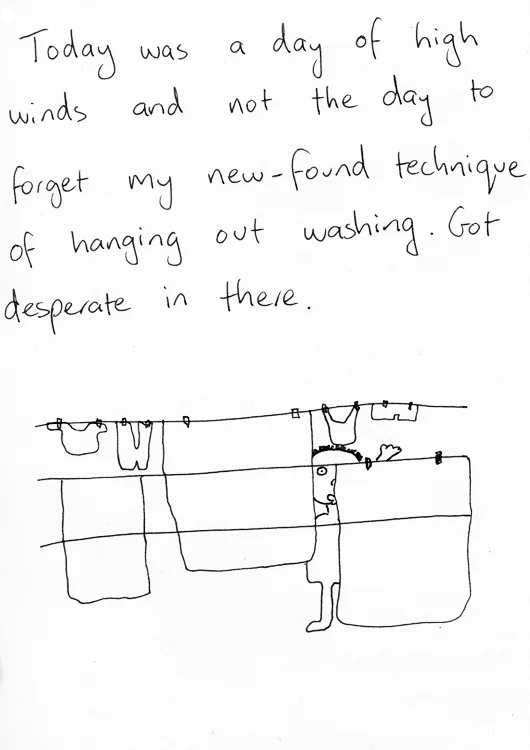 Today was a day of high
winds and not the day to
forget my new-found technique
of hanging out washing. Got
desperate in there.